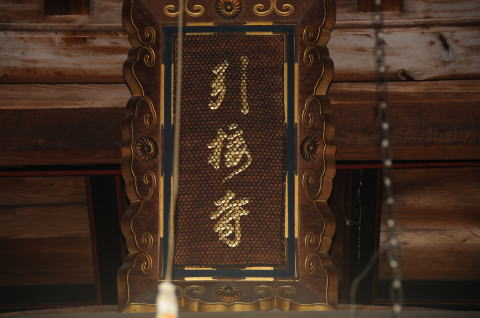 引接寺